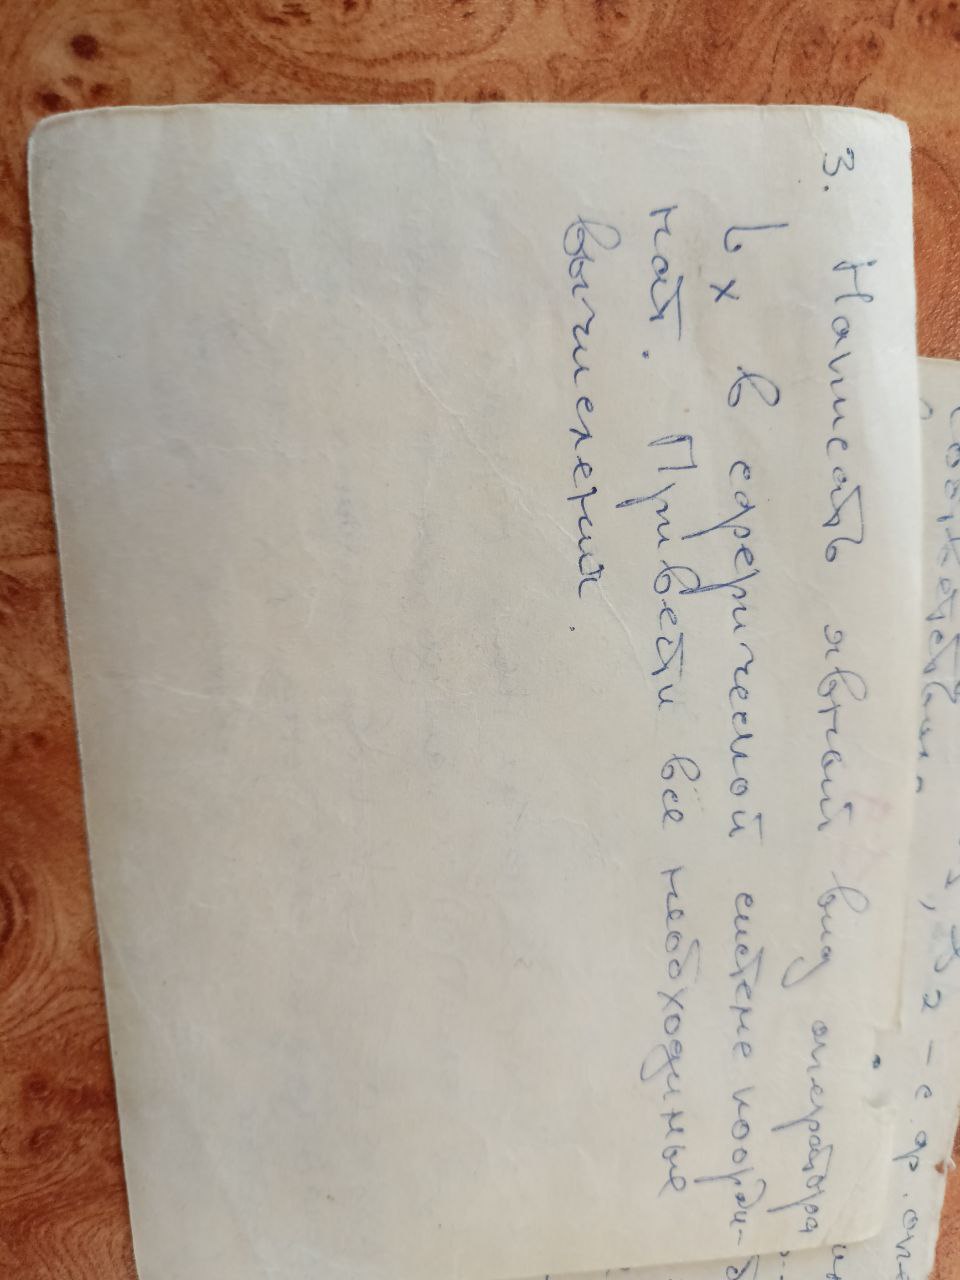 3. Написать явный вид оператора
Lx в сферической системе коорди-
нат. Привести все необходимые
вычисления.